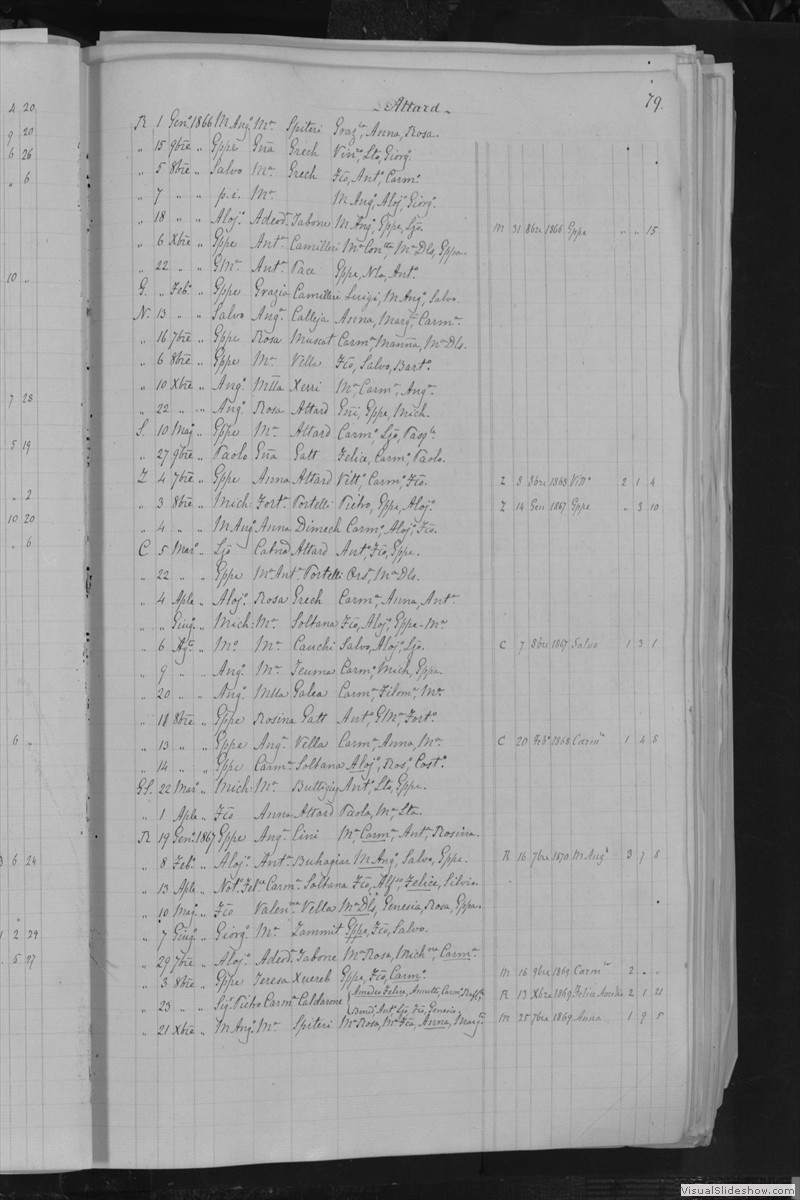 4 20
9 20
6 26
„ 6
10 „
7 28
5 19
„ 2
10 20
„ 6
6 „
3 6 24
1 2 29
5 27
Attard
79.
R 1 Gen.º 1866 M Ang.º M.ª Spiteri Graz.ª, Anna, Rosa.
„ 15 9bre „ Gppe Gña Grech Vin.ª, Lta, Giorg.º
„ 5 8bre „ Salvo M.ª Grech Fio, Ant.º, Carm.º
„ 7 „ „ p.i. M.ª M Ang.º, Aloj.º, Giorg.º
„ 18 „ „ Aloj.º Adeod.ª Tabone M Ang.º, Gppe, Ljo.
„ 6 Xbre „ Gppe Ant.ª Camilleri M.ª Con.tta, M.ª Dls, Gppa.
M 31 8bre 1866 Gppe „ „ 15
„ 22 „ „ GM.ª Ant.ª Pace Gppe, Nla, Ant.º
G. „ Feb.º „ Gppe Grazia Camilleri Luigi, M Ang.º, Salvo.
N. 13 „ „ Salvo Ang.ª Calleja Anna, Marg.ta, Carm.ª
„ 16 7bre „ Gppe Rosa Muscat Carm.ª, Manna, M.ª Dls.
„ 6 8bre „ Gppe M.ª Vella Fio, Salvo, Bart.º
„ 10 Xbre „ Ang.º Mlla Xerri M.ª, Carm.ª, Ang.ª
„ 22 „ „ Ang.º Rosa Attard Eñi, Gppe, Mich.
S. 10 Mag.º „ Gppe M.ª Attard Carm.º, Ljo, Pasq.le
„ 27 9bre „ Paolo Gña Gatt Felice, Carm.º, Paolo.
Z 4 7bre „ Gppe Anna Attard Vitt.ª, Carm.º, Fio.
Z 8 8bre 1868 Vitt.ª 2 1 4
„ 3 8bre „ Mich: Fort.ª Portelli Pietro, Gppe, Aloj.º
Z 14 Gen 1867 Gppe „ 3 10
„ 4 „ „ M Ang.º Anna Dimech Carm.º, Aloj.º, Fio.
C 5 Mar.º „ Ljo Catnã Attard Ant.º, Fio, Gppe.
„ 22 „ „ Gppe M.ª Ant.ª Portelli Ors.ª, M.ª Dls.
„ 4 Aple „ Aloj.º Rosa Grech Carm.ª, Anna, Ant.ª
„ „ Giug.º „ Mich: M.ª Soltana Fio, Aloj.º, Gppe-M.ª
„ 6 Ag.to „ M.º M.ª Cauchi Salvo, Aloj.º, Ljo.
C 7 8bre 1867 Salvo 1 3 1
„ 9 „ „ Ang.º M.ª Teuma Carm.º, Mich, Gppa.
„ 20 „ „ Ang.º Mlla Galea Carm.ª, Filom.ª, M.ª
„ 18 8bre „ Gppe Rosina Gatt Ant.º, GM.ª, Fort.º
„ 13 „ „ Gppe Ang.ª Vella Carm.ª, Anna, M.ª
C 20 Feb.º 1868 Carm.ª 1 4 8
„ 14 „ „ Gppe Carm.ª Soltana Aloj.º, Ros.º, Cost.º
GS. 22 Mar.º „ Mich: M.ª Buttigieg Ant.º, Lta, Gppe.
„ 1 Aple „ Fio Anna Attard Paolo, M.ª Lta.
R 19 Gen.º 1867 Gppe Ang.ª Cini M.ª, Carm.ª, Ant.ª, Rosina.
„ 8 Feb.º „ Aloj.º Ant.ª Buhagiar M Ang.º, Salvo, Gppe.
R 16 7bre 1870 M Ang.º 3 7 8
„ 13 Aple „ Not.º Fel.ce Carm.ª Soltana Fio, Alf.so, Felice, Silvio.
„ 10 Mag.º „ Fio Valen.na Vella M.ª Dls, Genesia, Rosa, Gppa.
„ 7 Giug.º „ Giorg.º M.ª Zammit Gppe, Fio, Salvo.
„ 29 7bre „ Aloj.º Adeod.ª Tabone M.ª Rosa, Mich.na, Carm.ª
„ 3 8bre „ Gppe Teresa Xuereb Gppe, Fio, Carm.º
M 16 9bre 1869 Carm.º 2 „ „
„ 23 „ Sig.r Pietro Carm.ª Caldarone { Amedeo Felice, Annetta, Carm.º, Raff.
Ant.º, Ljo, Fio, Genesia.
R 13 Xbre 1869 Felice Amedeo 2 1 21
„ 21 Xbre „ M Ang.º M.ª Spiteri M.ª Rosa, M.ª Fia, Anna, Marg.ta
M 25 7bre 1869 Anna 1 9 5
VisualSlideshow.com